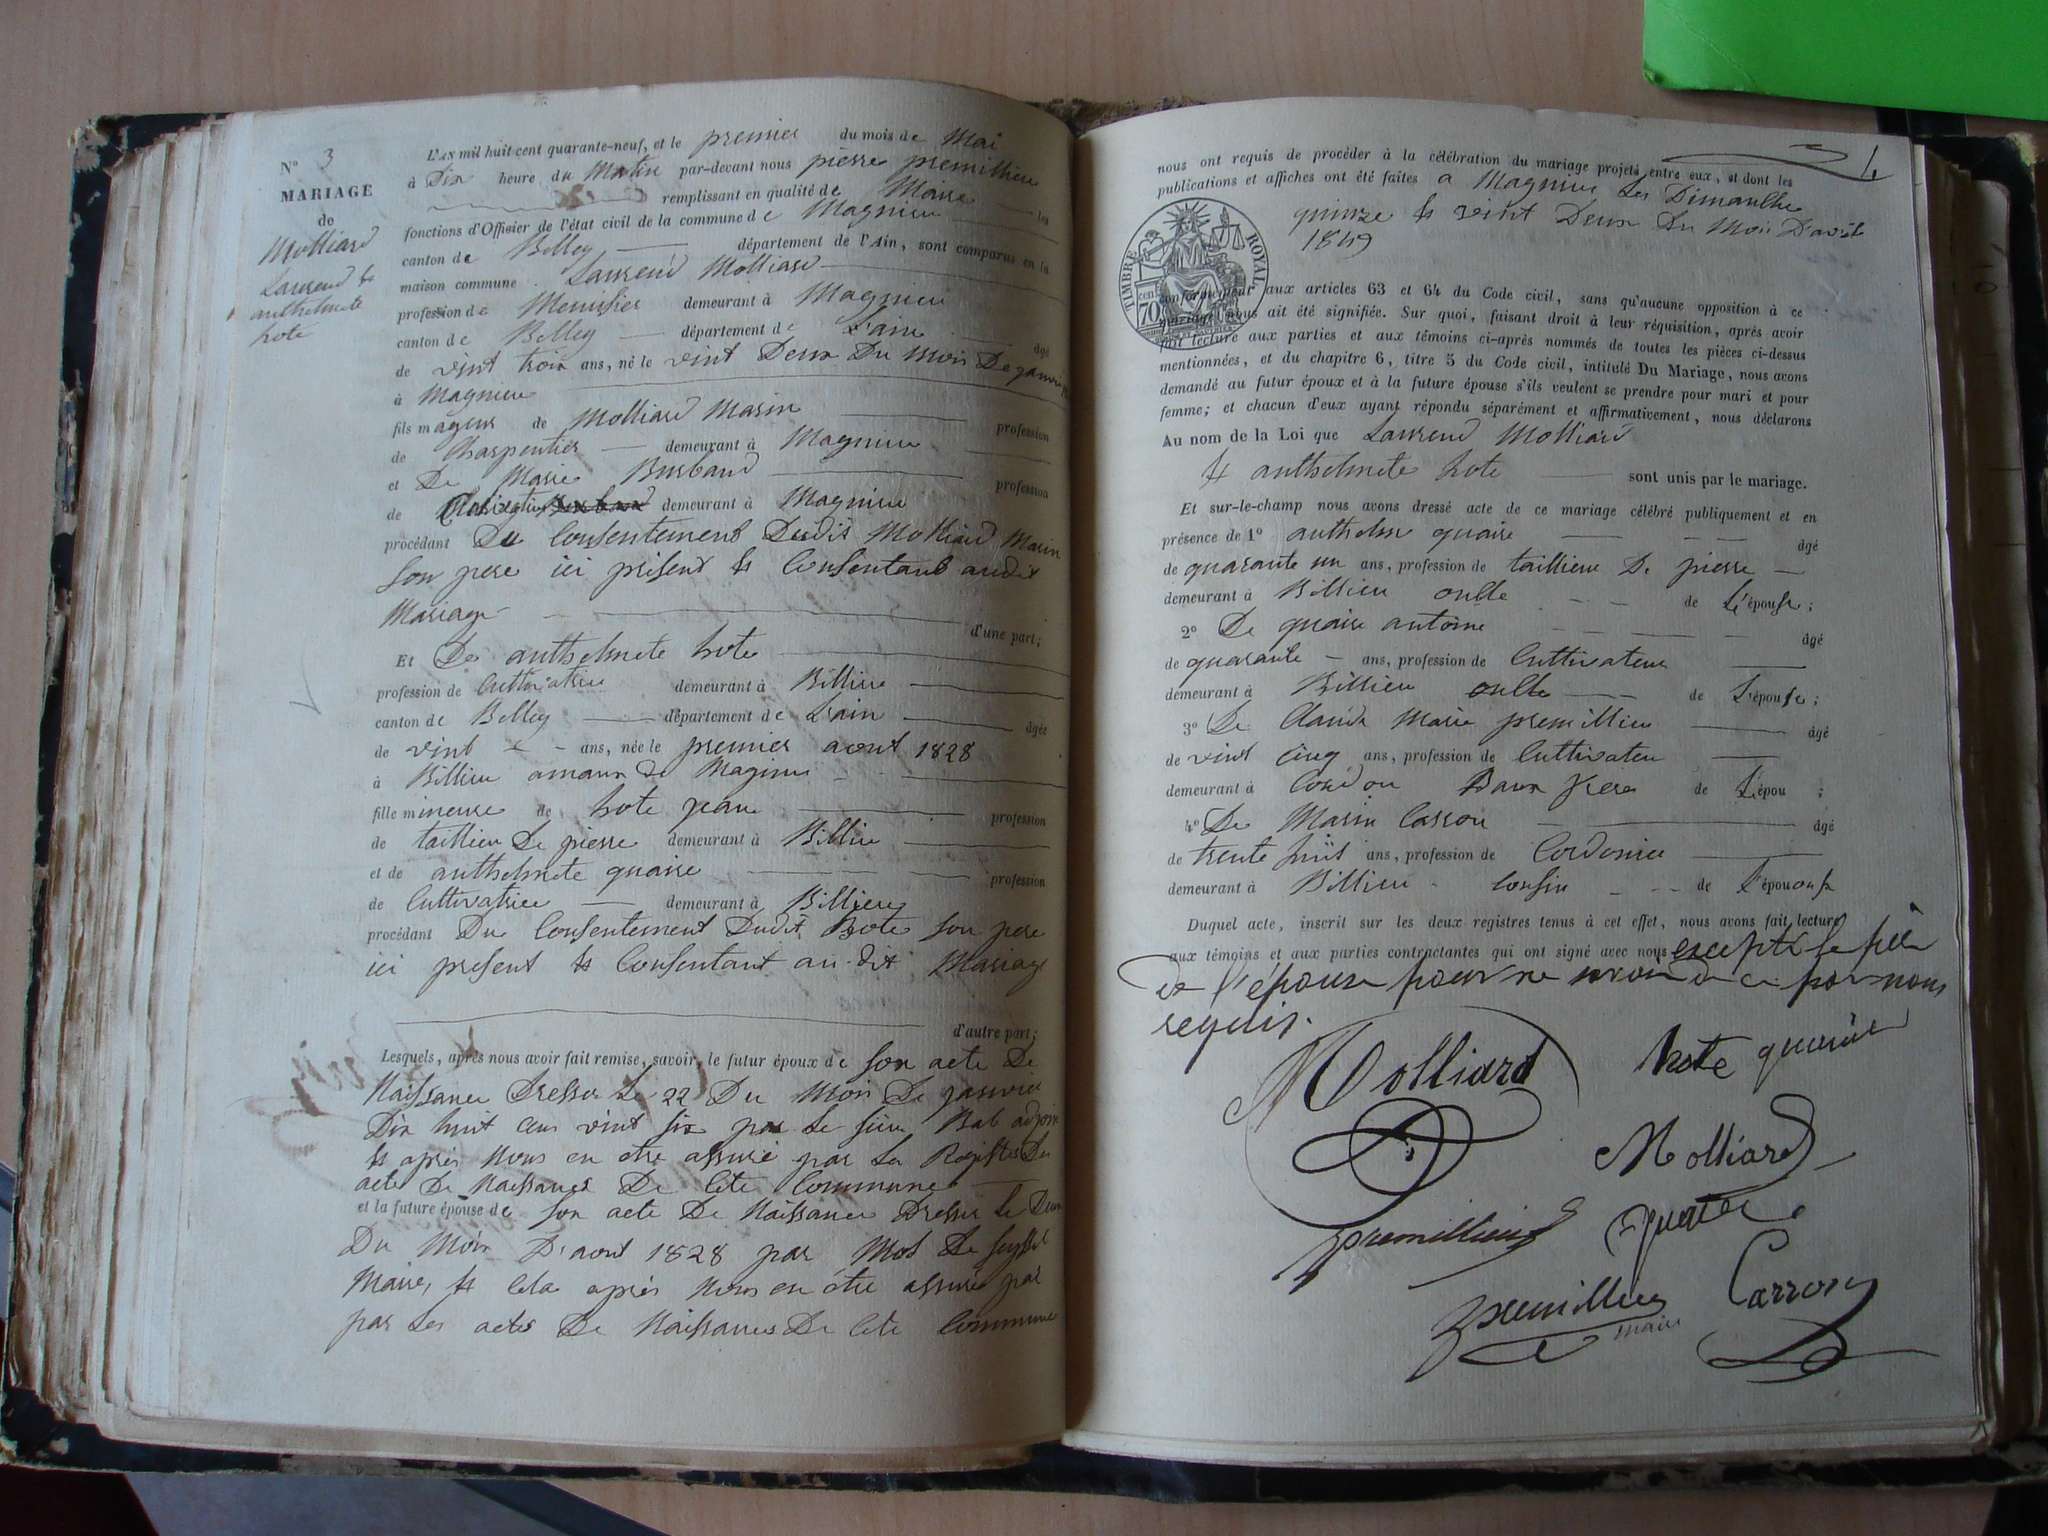 N° 3
MARIAGE
de
Molliard
Laurend &
anthelmete
hote
L'AN mil huit cent quarante-neuf, et le premier du mois de Mai
à Dix heure du Matin par-devant nous pierre premillieu
remplissant en qualité de Maire les
fonctions d'Officier de l'état civil de la commune de Magnieu
canton de Belley département de l'Ain, sont comparus en la
maison commune Laurend Molliard
profession de Menusier demeurant à Magnieu
canton de Belley département de Lain âgé
de vint trois ans, né le vint Deux Du Mois De janvier
à Magnieu
fils mageur de Molliard Marin profession
de Charpentier demeurant à Magnieu
et De Marie Burbaud profession
de demeurant à Magnieu
procédant Du Consentement Dudit Molliard Marin
son pere ici présent & Consentant audit
Mariage d'une part;
Et De anthelmete hote
profession de Cultivatrice demeurant à Billieu
canton de Belley département de Lain âgée
de vint ans, née le premier aout 1828
à Billieu amaux de Magnieu
fille mineure de hote jean profession
de taillieu De pierre demeurant à Billieu
et de anthelmete quaire profession
de Cultivatrice demeurant à Billieu
procédant Du Consentement Dudit hote son pere
ici present & Consentant au-dit Mariage
d'autre part;
Lesquels, après nous avoir fait remise, savoir, le futur époux de son acte De
Naissance Dresser Le 22 Du Mois De janvier
Dix huit cens vint six par Le sieur Bal adjoint
& après Nous en etre assuré par Les Registres Des
acte De Naissances De Cete Commune
et la future épouse de son acte De Naissance Dresser Le Deux
Du Mois D'aout 1828 par Mr De seyssel
Maire, & Cela après Nous en être assurée par
par Les actes De Naissances De Cete Commune
1
nous ont requis de procéder à la célébration du mariage projeté entre eux, et dont les
publications et affiches ont été faites a Magnieu Les Dimanche
quinze & vint Deux Du Mois D'avril
1849
TIMBRE ROYAL
70 cen
conformément aux articles 63 et 64 du Code civil, sans qu'aucune opposition à ce
mariage nous ait été signifiée. Sur quoi, faisant droit à leur réquisition, après avoir
fait lecture aux parties et aux témoins ci-après nommés de toutes les pièces ci-dessus
mentionnées, et du chapitre 6, titre 5 du Code civil, intitulé Du Mariage, nous avons
demandé au futur époux et à la future épouse s'ils veulent se prendre pour mari et pour
femme; et chacun d'eux ayant répondu séparément et affirmativement, nous déclarons
Au nom de la Loi que Laurend Molliard
& anthelmete hote sont unis par le mariage.
Et sur-le-champ nous avons dressé acte de ce mariage célébré publiquement et en
présence de 1° anthelme quaire âgé
de quarante un ans, profession de taillieur De pierre
demeurant à Billieu oncle de L'épouse;
2° De quaire antoine âgé
de quarante ans, profession de Cultivateur
demeurant à Billieu oncle de L'épouse;
3° De Claude Marie premillieu âgé
de vint cinq ans, profession de Cultivateu
demeurant à Condon Baux freres de L'épou ;
4° De Marin Carron âgé
de trente huit ans, profession de Cordonier
demeurant à Billieu Cousin de L'épouse
Duquel acte, inscrit sur les deux registres tenus à cet effet, nous avons fait lecture
aux témoins et aux parties contractantes qui ont signé avec nous excepté le père
de l'épouse pour ne savoir de ce par nous
requis.
Molliard hote quaire
Molliard
premillieu
premillieu Carron
maire